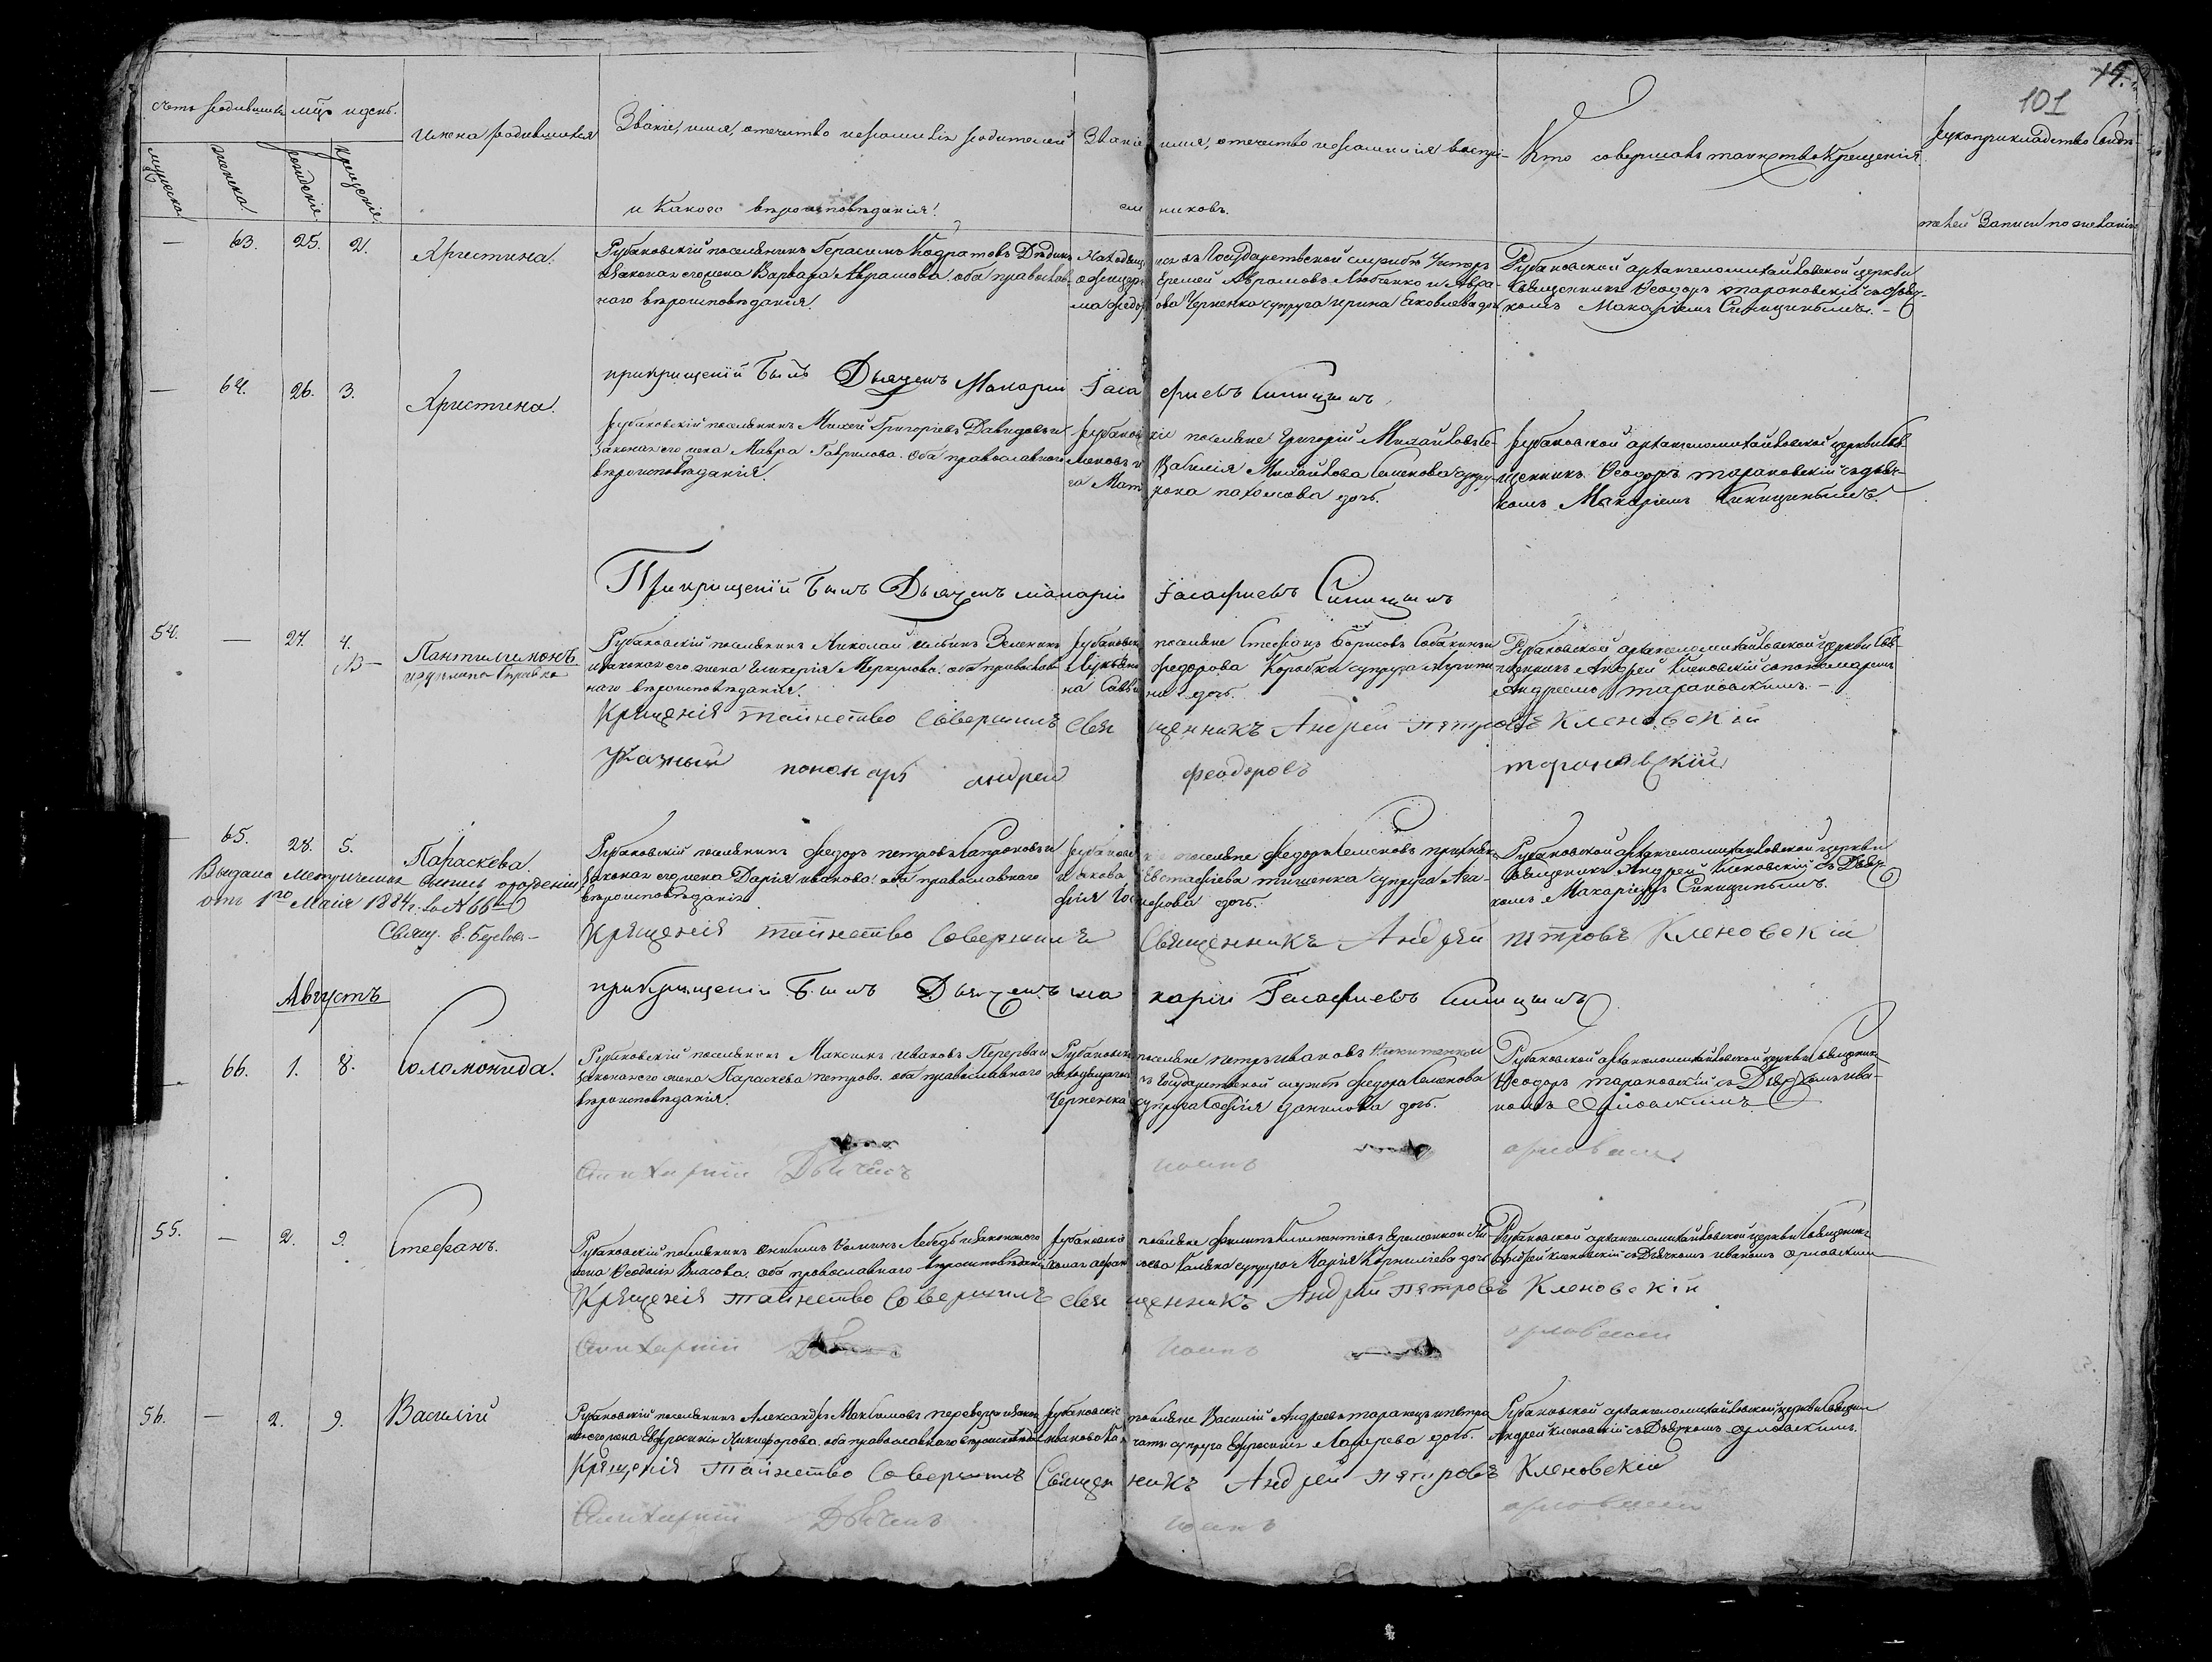 101
Счетъ родившихся
мѣс. и день.
Имена родившихся
Званіе, имя, отечество и фамилія родителей
и какого вѣроисповѣданія!
Званіе имя, отечество и фамилія воспрі-
ем никовъ.
Кто совершалъ таинство Крещенія.
рукоприкладство свидѣ-
телей записи по желанію
мужеска
женска
рожденія
крещенія
— 63. 25. 2. Христина.
Рубановскій поселянинъ Герасимъ Кодратовъ Дѣдикъ
и законая его жена Варвара Аврамова. оба православ-
наго вѣроисповѣданія.
Находящ ся въ Государственной службѣ Унтеръ
офицеръ Еремей Аврамовъ Любенко и Авра-
ма Федо рова Черненка супруга Ирина Яковлева доч
Рубановской архангеломихайловской церкви
Священникъ Ѳеодоръ Тарановскій съ дьяч-
комъ Макаріемъ Синицинымъ. —
прикрищеніи былъ Дьячекъ Макарій Гаса фиевъ Синицынъ
— 64. 26. 3. Христина.
рубановскій поселянинъ Михей Григоріевъ Давидовъ и
законая его жена Мавра Гаврилова. Оба православнаго
вѣроисповѣданія.
рубановс кіе поселяне Григорій Михайловъ Се-
меновъ и Василія Михайлова Семенова супру-
га Мат рона пахомова дочь.
рубановской архангеломихайловской церкви Свя-
щенникъ Ѳеодоръ Тарановскій съ дьяч-
комъ Макаріемъ Синицинымъ.
Прикрищеніи былъ Дьячекъ макарій Гасафиевъ Синицынъ
54. — 27. 4. Пантилимонъ
Рубановскій поселянинъ Николай Ильинъ Зеленинъ
и законая его жена Гликерія Меркулова. оба православ-
наго вѣроисповѣданія.
рубановскі поселяне Стефанъ Борисовъ Собакинъ и
Лукьяна федорова Коробки супруга
на Савви на дочь.
Рубановской архангеломихайловской церкви Свя-
щенникъ Андрей Кленовскій съ пономаремъ
Андреемъ Тарановскимъ. —
Крищенія таинство Совершилъ Свя щенникъ Андрей Пѣтровъ Кленовскій
Указный пономарь андрей феодоровъ тарановскій
— 65. 28. 5. Параскева.
Выдана Метрическая выпись о рожденіи
отъ 1го Маія 1884 г. за № 66
Свящ. Е.
Рубановскій поселянинъ федоръ петровъ и
законая его жена Дарія иванова. оба православнаго
вѣроисповѣданія
рубановс кіе поселяне федоръ Семеновъ
и Якова Евстафіева тищенка супруга Ага-
фія Іос ифова дочь.
Рубановской Архангеломихайловской церкви
Священникъ Андрей Кленовскій съ Дьяч-
комъ Макаріемъ Синицинымъ.
Крищенія таинство Совершилъ Священникъ Андрей пѣтровъ Кленовскій
Августъ
прикрищеніи былъ Дьячекъ ма карій Гасафиевъ Синицынъ
— 66. 1. 8. Соломонида.
Рубановскій поселянинъ Максимъ Ивановъ Перерва и
законая его жена Параскева петрова. оба православнаго
вѣроисповѣданія.
Рубановскі поселяне петръ ивановъ Никитенко и
находящагося въ Государственной службѣ федора Семенова
Черненка супруга Софія данилова дочь.
Рубановской архангеломихайловской церкви Священникъ
Ѳеодоръ Тарановскій съ Дьячкомъ ива-
номъ Орловскимъ
Дьячекъ иоанъ орловскій
55. — 2. 9. Стефанъ.
Рубановскій поселянинъ Ѳоминъ Лебедь и законая его
жена Ѳеодосія Власова. оба православнаго вѣроисповѣданія
рубановскіе поселяне филипъ
супруга Марія Корниліева дочь
Рубановской архангеломихайловской церкви Священникъ
Андрей Кленовскій съ Дьячкомъ иваномъ орловскимъ
Крищенія таинство Совершилъ Свя щенникъ Андрей Пѣтровъ Кленовскій
иоанъ орловскій
56. — 2. 9. Василій
Рубановскій поселянинъ Александръ Максимовъ и закон
ная его жена Евфросинія Никифорова. оба православнаго вѣроисповѣданія
рубановскіе поселяне Василій Андреевъ таранецъ и петра
иванова супруга Ефросинія Лазарева дочь.
Рубановской архангеломихайловской церкви Священ
Андрей Кленовскій съ Дьячкомъ орловскимъ.
Крищенія таинство Совершилъ Священ никъ Андрей Пѣтровъ Кленовскій
Дьячекъ иоанъ орловскій